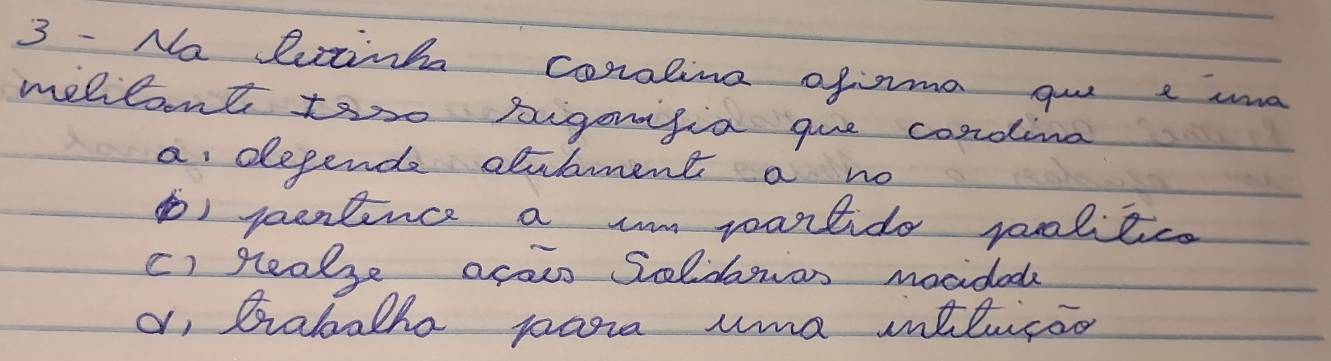 3 - Na lutinha coralina afirma que é uma
melitante isso saigonifia que coralina
a. defende atutamente a no
b) pertence a um partido político
c) realze ações Solidarias nocidade
d, trabalha para uma intituição